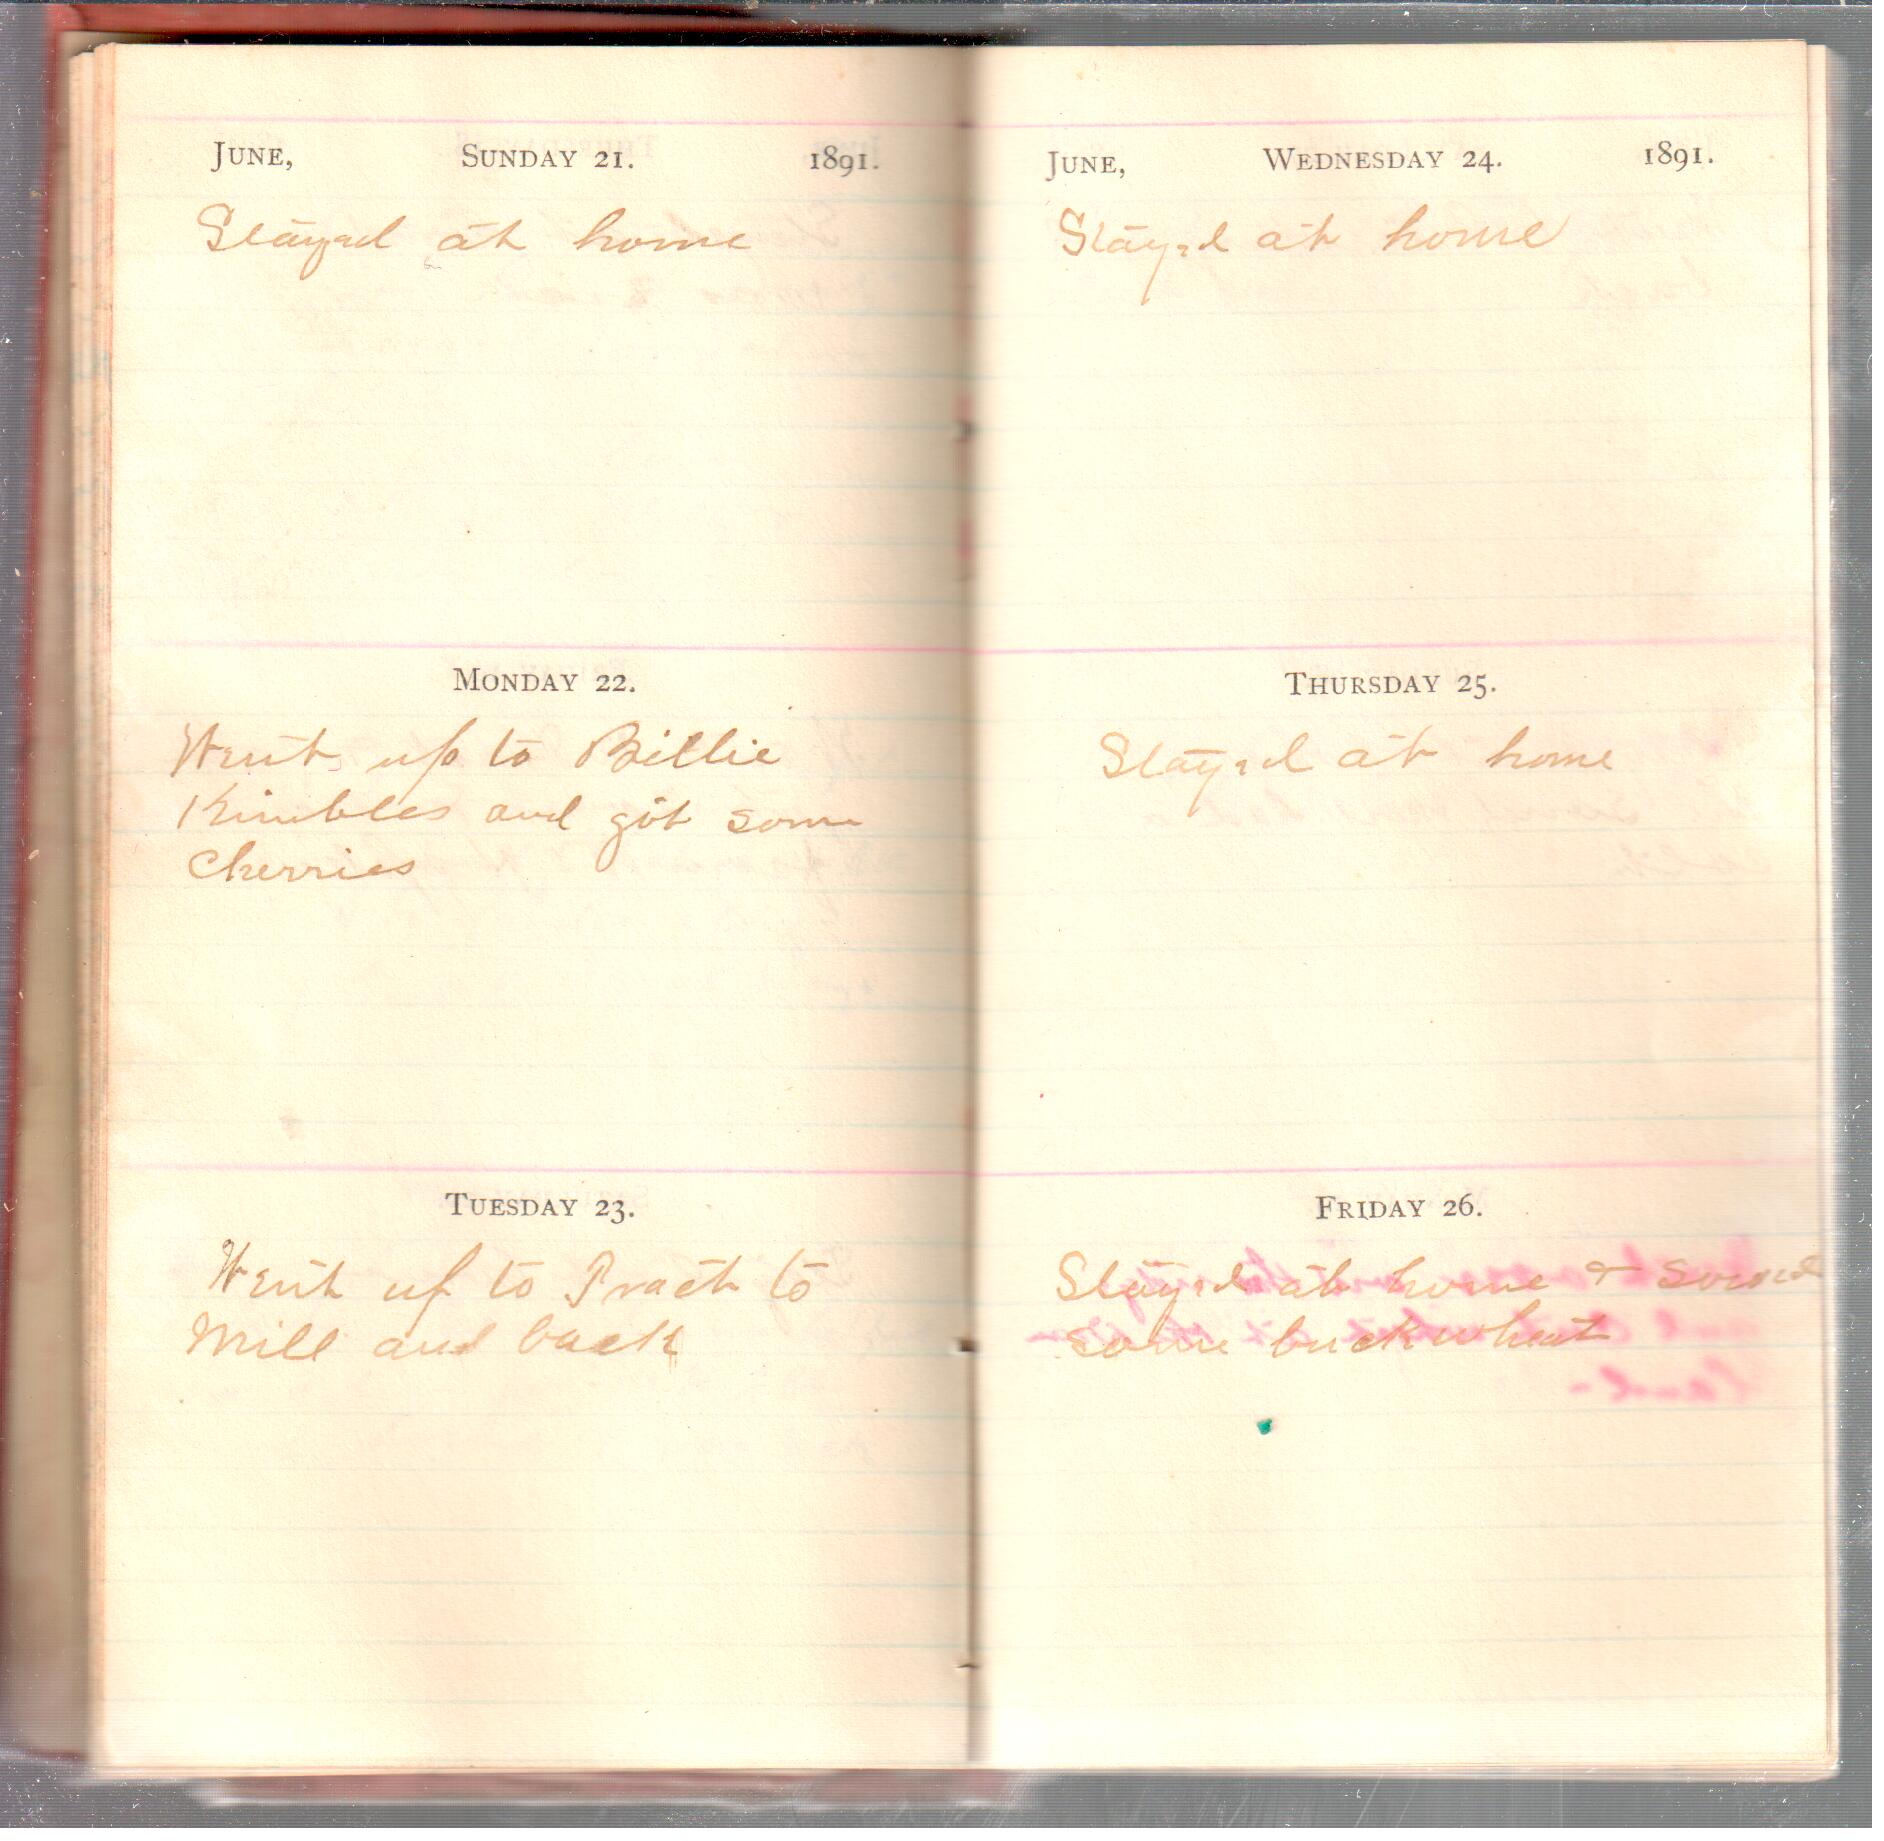 JUNE, SUNDAY 21. 1891.
Stayed at home
MONDAY 22.
Went up to Billie
Kimbles and got some
cherries
TUESDAY 23.
Went up to Pratt to
Mill and back
JUNE, WEDNESDAY 24. 1891.
Stayed at home
THURSDAY 25.
Stayed at home
FRIDAY 26.
Stayed at home & sowed
some buckwheat